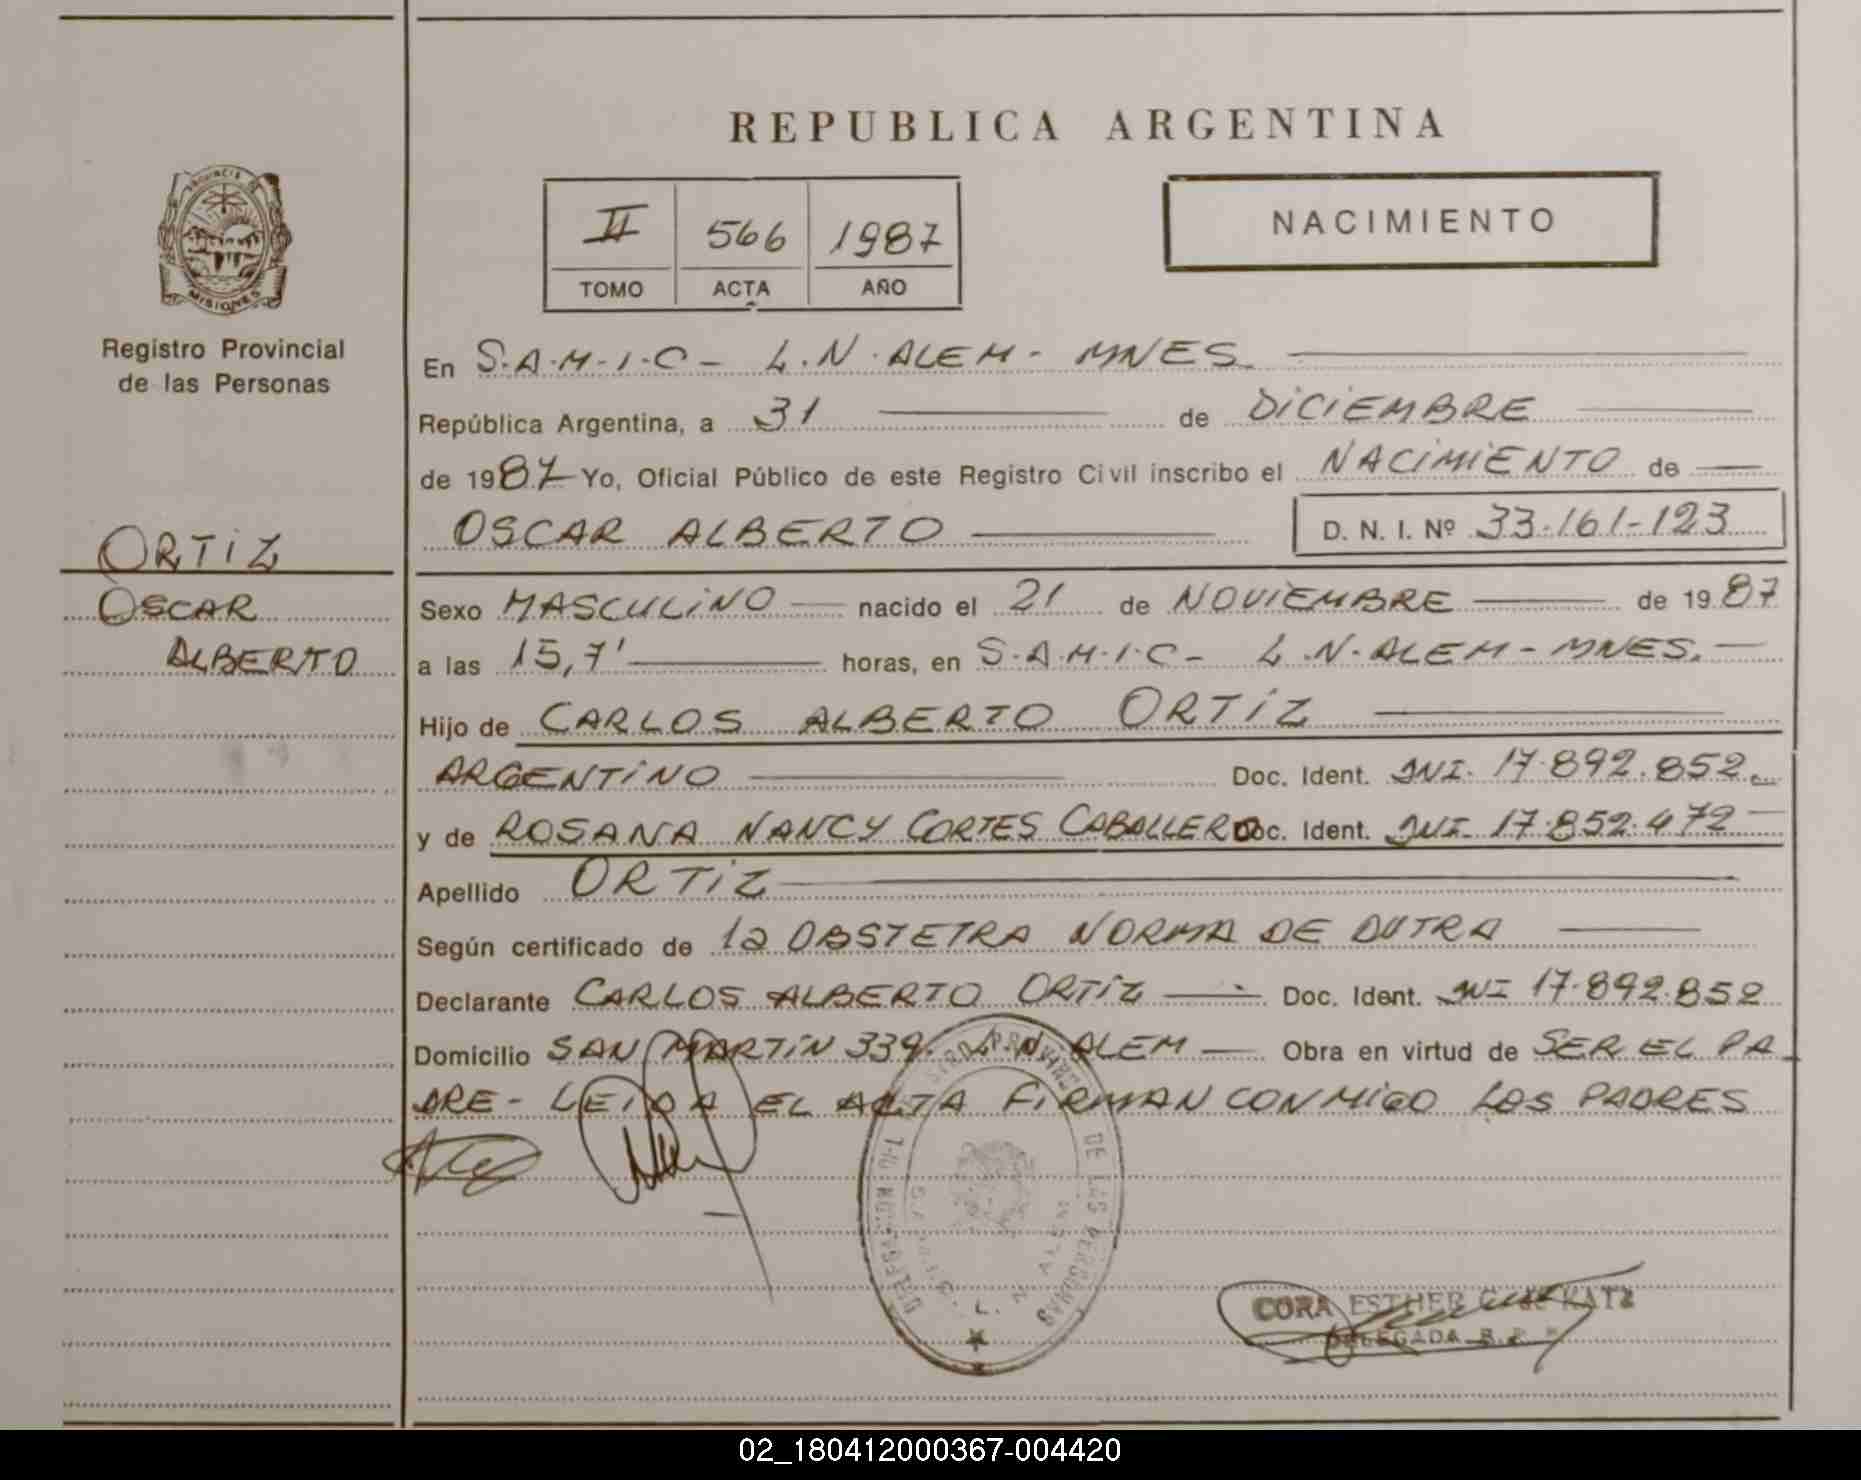 REPUBLICA ARGENTINA
PROVINCIA DE
MISIONES
Registro Provincial
de las Personas
II 566 1987
TOMO ACTA AÑO
NACIMIENTO
En S.A.M.I.C - L.N.ALEM - MNES
República Argentina, a 31 de DICIEMBRE
de 1987 Yo, Oficial Público de este Registro Civil inscribo el NACIMIENTO de
OSCAR ALBERTO D. N. I. Nº 33.161-123
ORTIZ
OSCAR
ALBERTO
Sexo MASCULINO nacido el 21 de NOVIEMBRE de 1987
a las 15,7' horas, en S.A.M.I.C - L.N.ALEM - MNES.
Hijo de CARLOS ALBERTO ORTIZ
ARGENTINO Doc. Ident. DNI. 17.892.852
y de ROSANA NANCY CORTES CABALLERO Doc. Ident. DNI. 17.852.472
Apellido ORTIZ
Según certificado de la OBSTETRA NORMA DE DUTRA
Declarante CARLOS ALBERTO ORTIZ Doc. Ident. DNI 17.892.852
Domicilio SAN MARTIN 339. L.N. ALEM Obra en virtud de SER EL PA
DRE - LEIDA EL ACTA FIRMAN CONMIGO LOS PADRES
DE LAS PERSONAS
CORA ESTHER G. de KATZ
DELEGADA R. P. P.
02_180412000367-004420